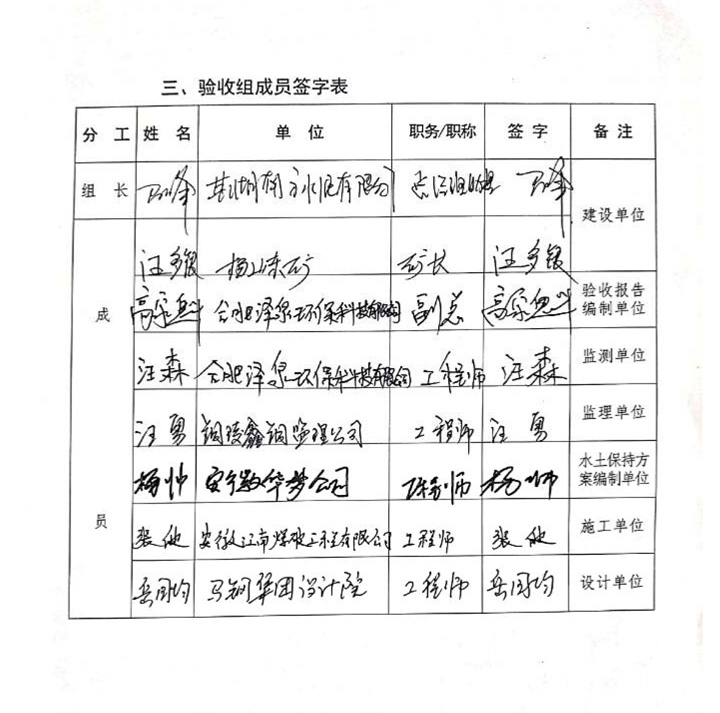 三、验收组成员签字表
分 工 姓 名 单 位 职务/职称 签 字 备 注
组 长 有限公司 建设单位
成 员
汪多银 矿 矿长 汪多银
高宗 合肥泽泉环保科技有限公司 副总 高宗 验收报告编制单位
汪森 合肥泽泉环保科技有限公司 工程师 汪森 监测单位
汪勇 铜陵鑫铜监理公司 工程师 汪勇 监理单位
杨帅 安徽华梦公司 工程师 杨帅 水土保持方案编制单位
安徽江南爆破工程有限公司 工程师 施工单位
岳国均 马钢集团设计院 工程师 岳国均 设计单位